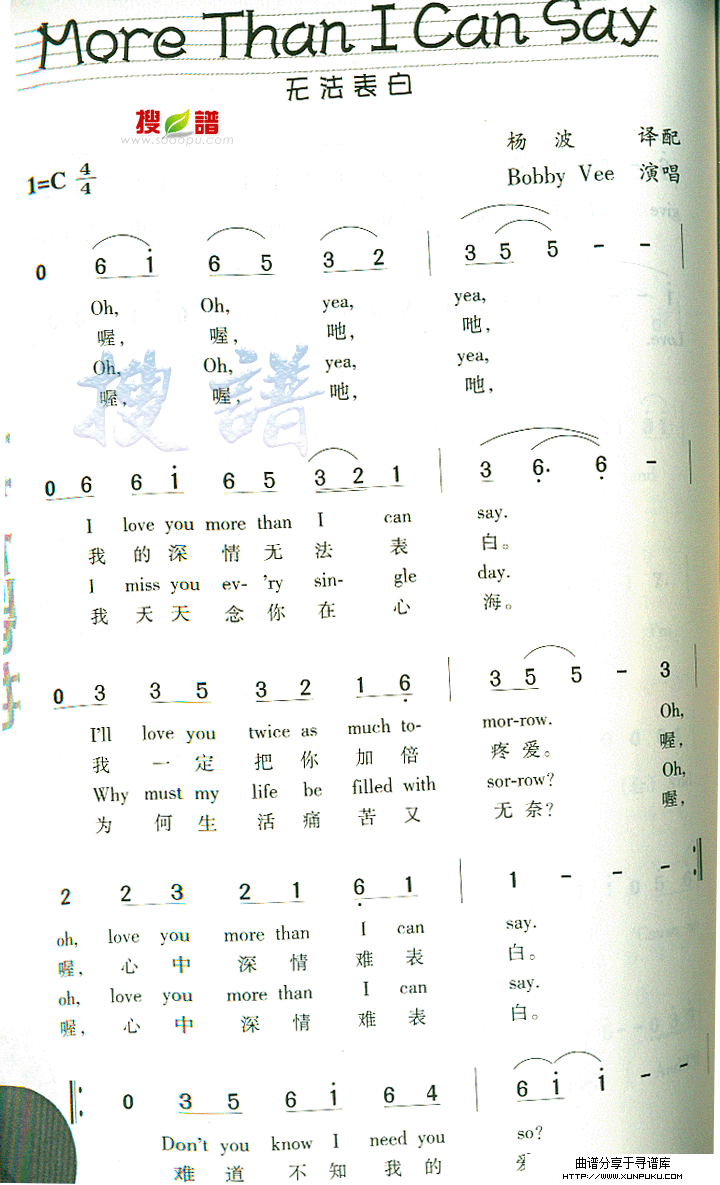 More Than I Can Say
无法表白
搜谱
www.sooopu.com
杨 波 译配
1=C 4/4
Bobby Vee 演唱
0 6 i 6 5 3 2 | 3 5 5 - - |
Oh, Oh, yea, yea,
喔, 喔, 吔, 吔,
Oh, Oh, yea, yea,
喔, 喔, 吔, 吔,
搜谱
0 6 6 i 6 5 3 2 1 | 3 6. 6 - |
I love you more than I can say.
我 的 深 情 无 法 表 白。
I miss you ev- 'ry sin- gle day.
我 天 天 念 你 在 心 海。
0 3 3 5 3 2 1 6 | 3 5 5 - 3 |
I'll love you twice as much to- mor-row. Oh,
我 一 定 把 你 加 倍 疼 爱。 喔,
Why must my life be filled with sor-row? Oh,
为 何 生 活 痛 苦 又 无 奈? 喔,
2 2 3 2 1 6 1 | 1 - - - :|
oh, love you more than I can say.
喔, 心 中 深 情 难 表 白。
oh, love you more than I can say.
喔, 心 中 深 情 难 表 白。
|: 0 3 5 6 i 6 4 | 6 i i - -
Don't you know I need you so?
难 道 不 知 我 的 爱
曲谱分享于寻谱库
HTTP://WWW.XUNPUKU.COM